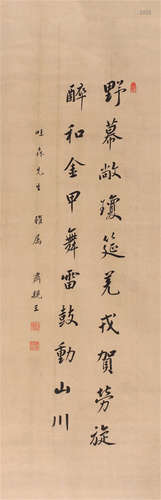 野幕敞瓊筵羌戎賀勞旋
醉和金甲舞雷鼓動山川
先生雅屬
肅親王